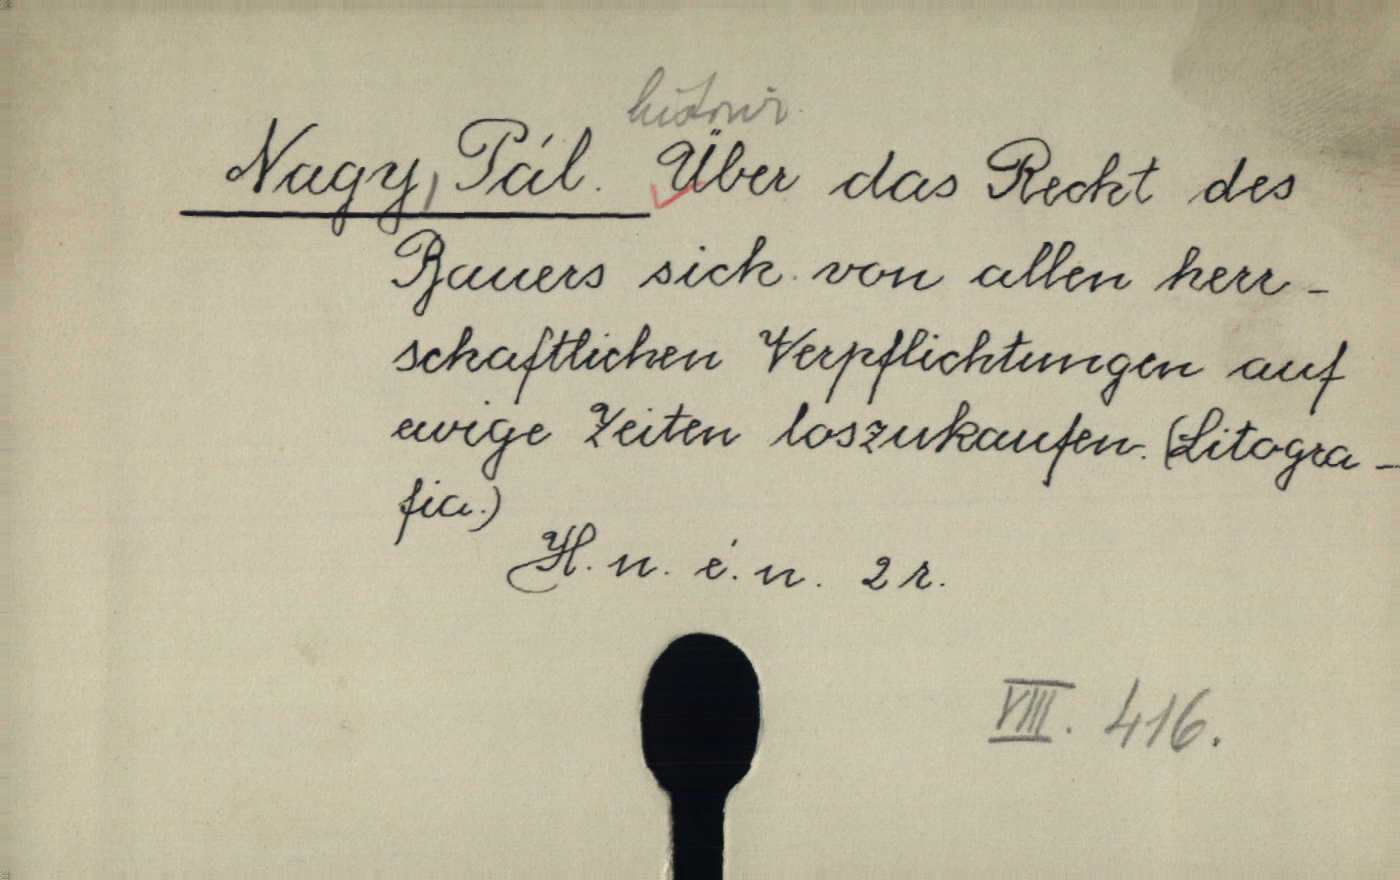 Nagy, Pál. Über das Recht des
Bauers sich von allen herr-
schaftlichen Verpflichtungen auf
ewige Zeiten loszukaufen. (Litogra-
fia.)
H. n. é. n. 2 r.
VIII. 416.